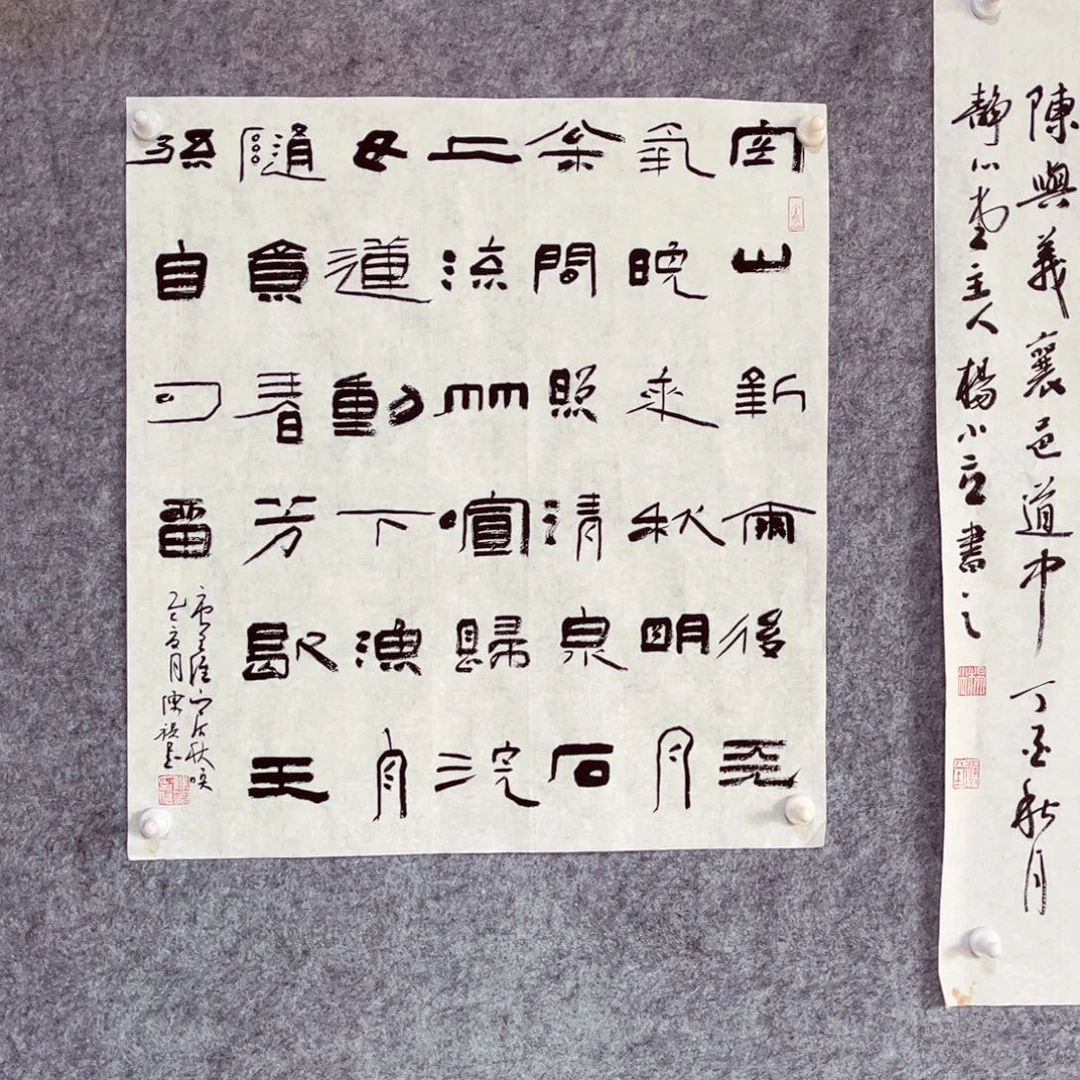 陳與義襄邑道中 丁酉秋月
靜心堂主人楊小立書之
空山新雨後天
氣晚來秋明月
松間照清泉石
上流竹喧歸浣
女蓮動下漁舟
隨意春芳歇王
孫自可留
唐王維山居秋暝
乙巳夏月陳